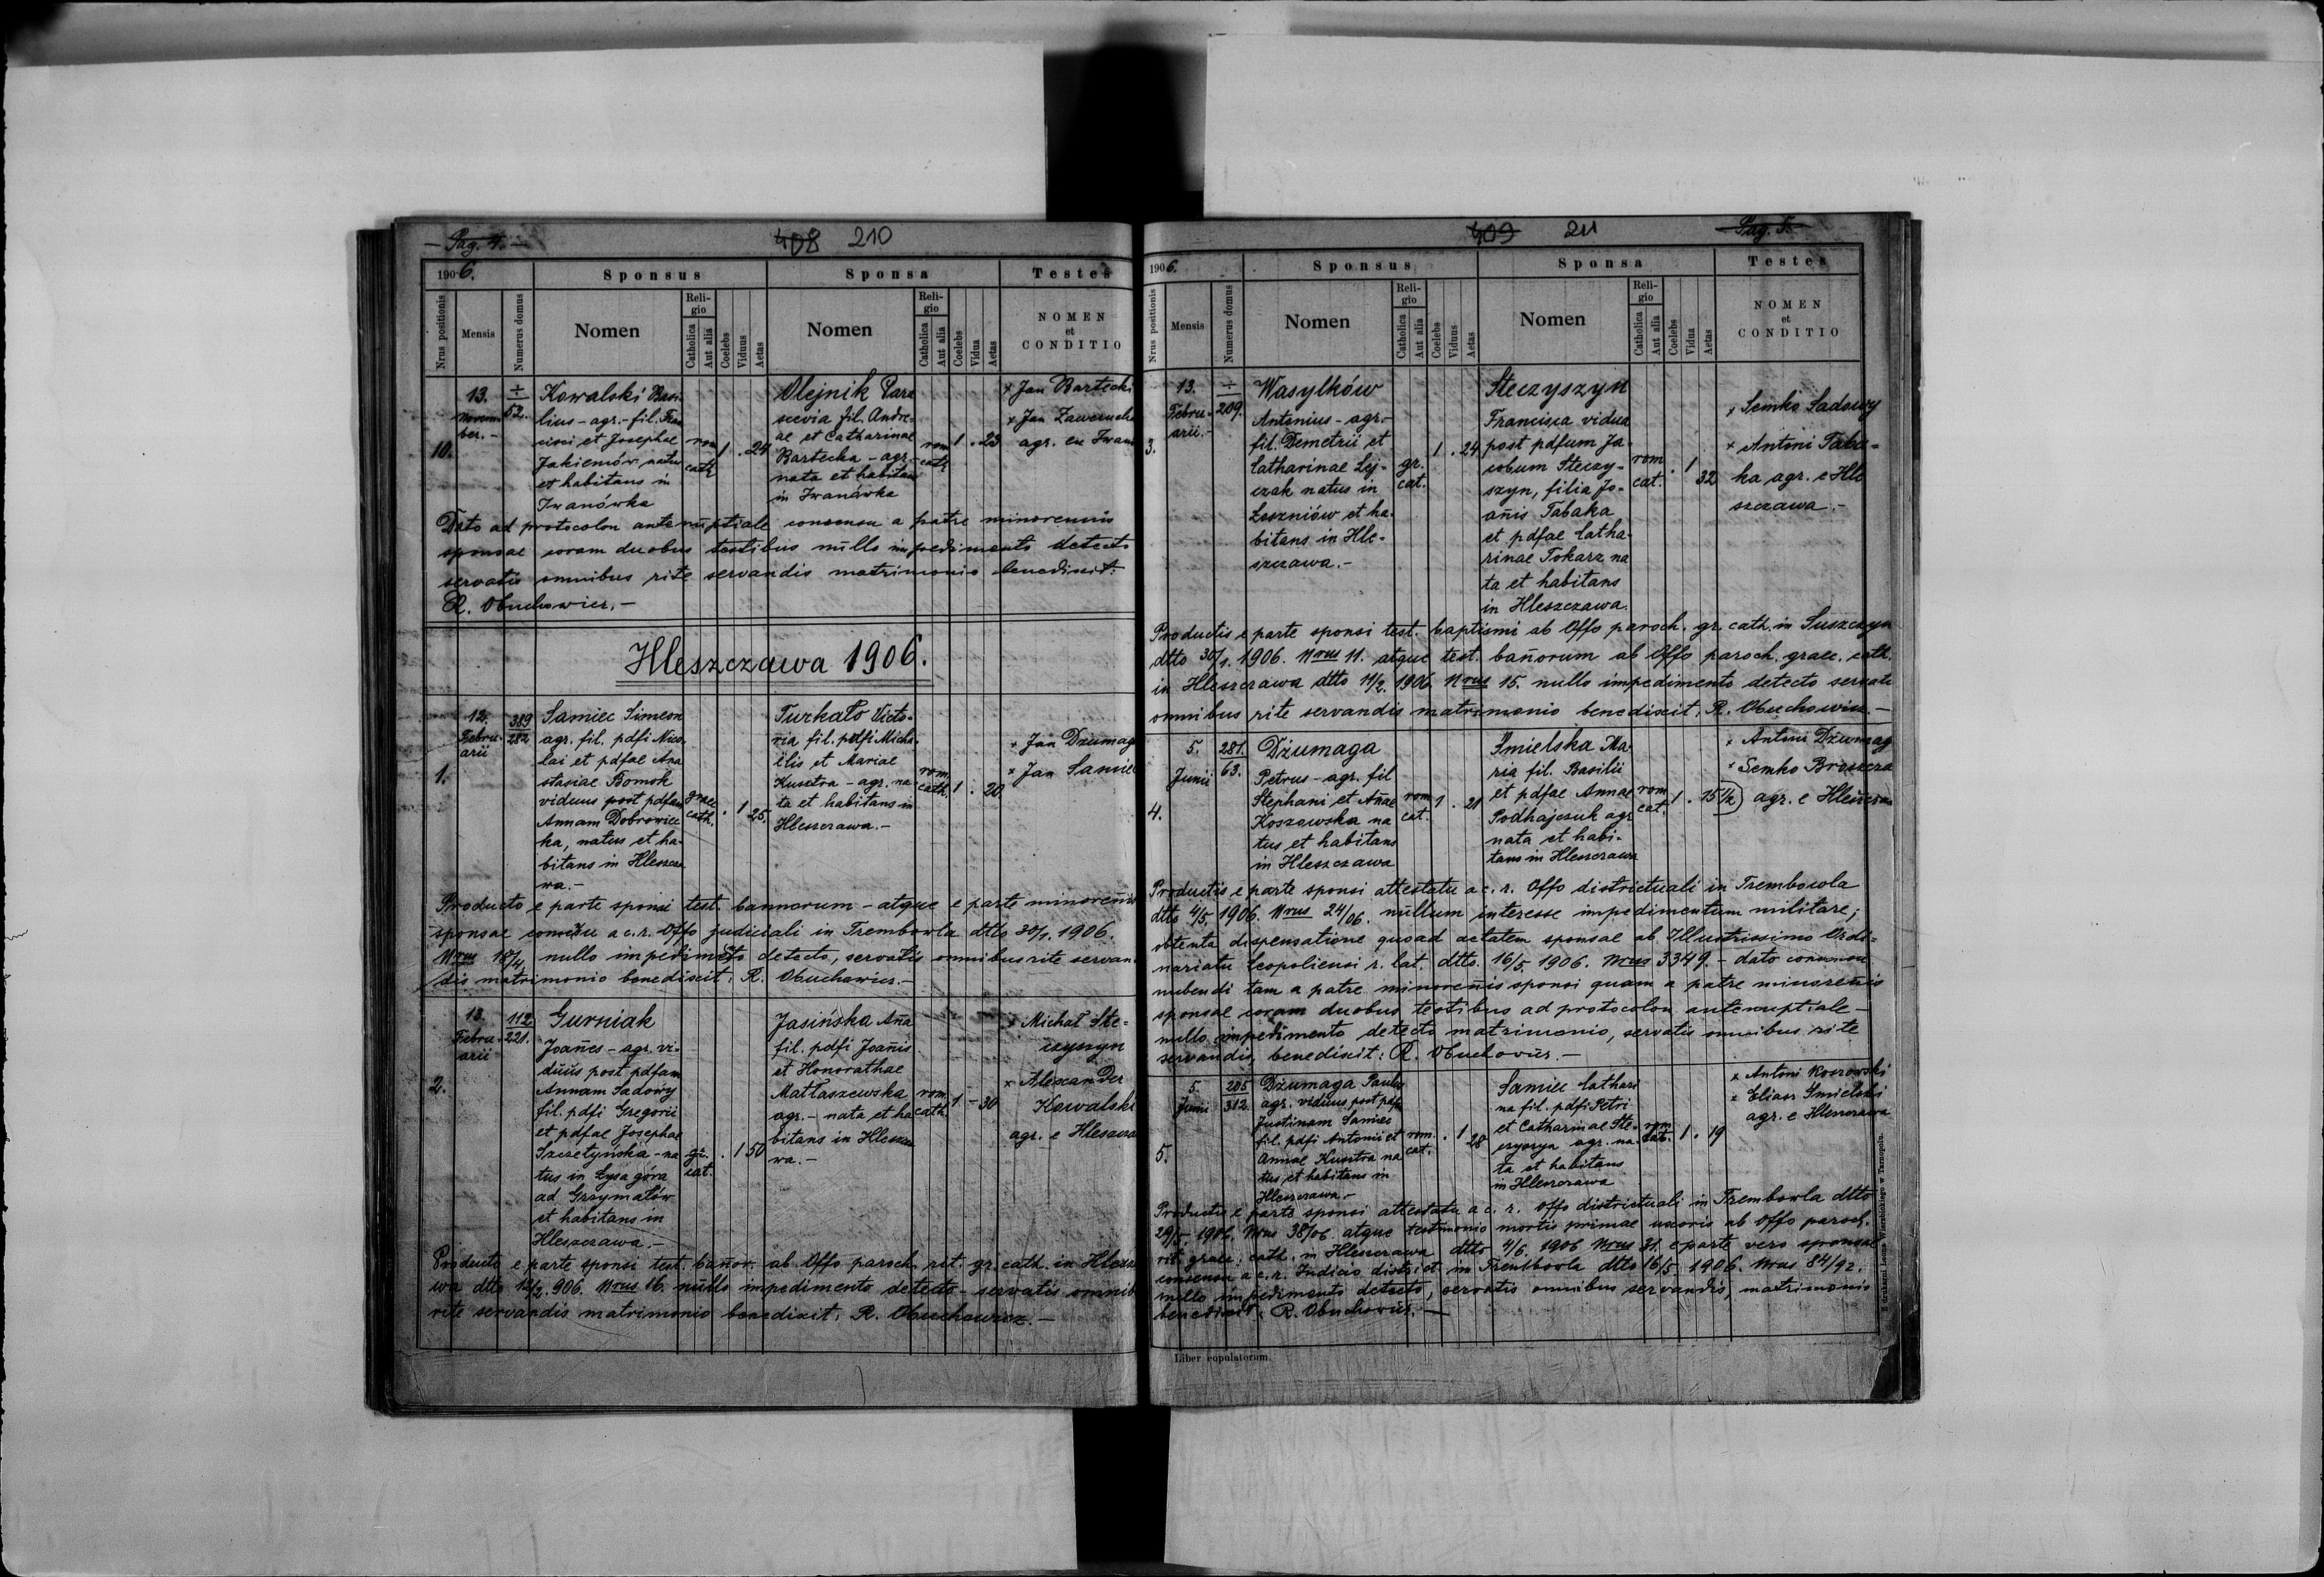 - Pag. 4. -
408 210
1906.
Sponsus
Sponsa
Testes
Nrus positionis
Mensis
Numerus domus
Nomen
Reli-
gio
Catholica
Aut alia
Coelebs
Viduus
Aetas
Nomen
Reli-
gio
Catholica
Aut alia
Coelebs
Vidua
Aetas
NOMEN
et
CONDITIO
10.
13.
Novem
ber. -
÷
52.
Kowalski Basi
lius - agr. - fil. Fran
cisci et Josephae
Jakiemów natus
et habitans in
Iwanówka
rom
cath
1 . 24
Olejnik Para
scevia fil. Andre-
ae et Catharinae
Bartecka - agr. -
nata et habitans
in Iwanówka
rom
cath
1 . 23
+ Jan Bartecki
+ Jan Zaweruch
agr. ex Iwan
Dato ad protocolon antenuptiale consensu a patre minorennis
sponsae coram duobus testibus nullo impedimento detecto
servatis omnibus rite servandis matrimonio benedixit:
R. Obuchowicz. -
Hleszczawa 1906.
1.
12.
Febru-
arii
389
282
Samiec Simeon
agr. fil. pdfi Nico
lai et pdfae Ana
stasiae Bomok
viduus post pdfam
Annam Dobrowiec
ka, natus et ha-
bitans in Hleszcza
wa. -
graec
cath.
. 1 25.
Turkało Victo-
ria fil. pdfi Micha
ëlis et Mariae
Kusztra - agr. na
ta et habitans in
Hleszczawa. -
rom.
cath.
1 . 20
+ Jan Dżumaga
+ Jan Samiec
Producto e parte sponsi test. bannorum - atque e parte minoreñis
sponsae consensu a c. r. Offo judiciali in Trembowla dtto 30/1. 1906.
Nrus 18/4 nullo impedimeto detecto, servatis omnibus rite servan
dis matrimonio benedixit: R. Obuchowicz. -
2.
13.
Febru-
arii
112
221.
Gurniak
Joañes - agr. vi-
duus post pdfam
Annam Sadowy
fil. pdfi Gregorii
et pdfae Josephae
Szczetyńska - na
tus in Łysa góra
ad Grzymałów
et habitans in
Hleszczawa. -
gr.
cat.
. 1 50
Jasińska Aña
fil. pdfi Joañis
et Honorathae
Matłaszewska
agr. - nata et ha
bitans in Hleszcza
wa. -
rom
cath
1 - 30
+ Michał Ste-
czyszyn
+ Alexander
Kowalski
agr. e Hleszcza
Producto e parte sponsi test. bañor. ab Offo paroch. rit. gr. cath. in Hleszcza
wa dtto 12/2. 906. Nrus 16. nullo impedimento detecto - servatis omnib
rite servandis matrimonio benedixit: R. Obuchowicz. -
409 211
Pag. 5.
1906.
Sponsus
Sponsa
Testes
Nrus positionis
Mensis
Numerus domus
Nomen
Reli-
gio
Catholica
Aut alia
Coelebs
Viduus
Aetas
Nomen
Reli-
gio
Catholica
Aut alia
Coelebs
Vidua
Aetas
NOMEN
et
CONDITIO
3.
13.
Febru-
arii. -
÷
209.
Wasylków
Antonius - agr. -
fil. Demetrii et
Catharinae Lej-
czak natus in
Łoszniów et ha-
bitans in Hle-
szczawa. -
gr.
cat.
1 . 24
Steczyszyn
Francisca vidua
post pdfum Ja-
cobum Steczy-
szyn, filia Jo-
añis Tabaka
et pdfae Catha-
rinae Tokarz na
ta et habitans
in Hleszczawa.
rom
cat.
. 1 32
+ Semko Sadowy
+ Antoni Taba-
ka agr. e Hle
szczawa. -
Productis e parte sponsi test. baptismi ab Offo paroch. gr. cath. in Suszczyn
dtto 30/1. 1906. Nrus 11. atque test. bañorum ab Offo paroch. graec. cath.
in Hleszczawa dtto 11/2. 1906. Nrus 15. nullo impedimento detecto servatis
omnibus rite servandis matrimonio benedixit: R. Obuchowicz. -
4.
5.
Junii
281.
63.
Dżumaga
Petrus - agr. fil
Stephani et Añae
Koszowska na
tus et habitans
in Hleszczawa
rom
cat.
1 . 21
Smielska Ma
ria fil. Basilii
et pdfae Annae
Podhajczuk agr
nata et habi-
tans in Hleszczawa
rom
cat.
1 . 15 1/2
+ Antoni Dżumag
+ Semko Broszcza
agr. e Hleszczaw
Productis e parte sponsi attestatu a c. r. Offo districtuali in Trembowla
dtto 4/5. 1906. Nrus 24/06. nullum interesse impedimentum militare;
obtenta dispensatione quoad aetatem sponsae ab Illustrissimo Ordi-
nariatu Leopoliensi r. lat. dtto. 16/5. 1906. Nrus 3349. - dato consensu
nubendi tam a patre minoreñis sponsi quam a patre minoreñis
sponsae coram duobus testibus ad protocolon antenuptiale -
nullo impedimento detecto matrimonio, servatis omnibus rite
servandis, benedixit: R. Obuchowicz. -
5.
5.
Junii
205
312.
Dżumaga Paulus
agr. viduus post pdfa
Justinam Samiec
fil. pdfi Antonii et
Annae Kusztra na
tus et habitans in
Hleszczawa. -
rom.
cat.
. 1 28
Samiec Cathari
na fil. pdfi Petri
et Catharinae Ste-
czyszyn agr. na-
ta et habitans
in Hleszczawa
rom
cat.
1 . 19
+ Antoni Koszowski
+ Eliasz Smielski
agr. e Hleszczawa
Productis e parte sponsi attestatu a c. r. Offo districtuali in Trembowla dtto
29/5. 1906. Nrus 38/06. atque testimonio mortis primae uxoris ab Offo paroch.
rit. graec. cath. in Hleszczawa dtto 4/6. 1906 Nrus 31. e parte vero sponsae
consensu a c. r. Judicio district in Trembowla dtto 16/5 1906. Nrus 84/92.
nullo impedimento detecto, servatis omnibus servandis, matrimonio
benedixit: R. Obuchowicz. -
Liber copulatorum.
Z drukarni Leona Wierzbickiego w Tarnopolu.